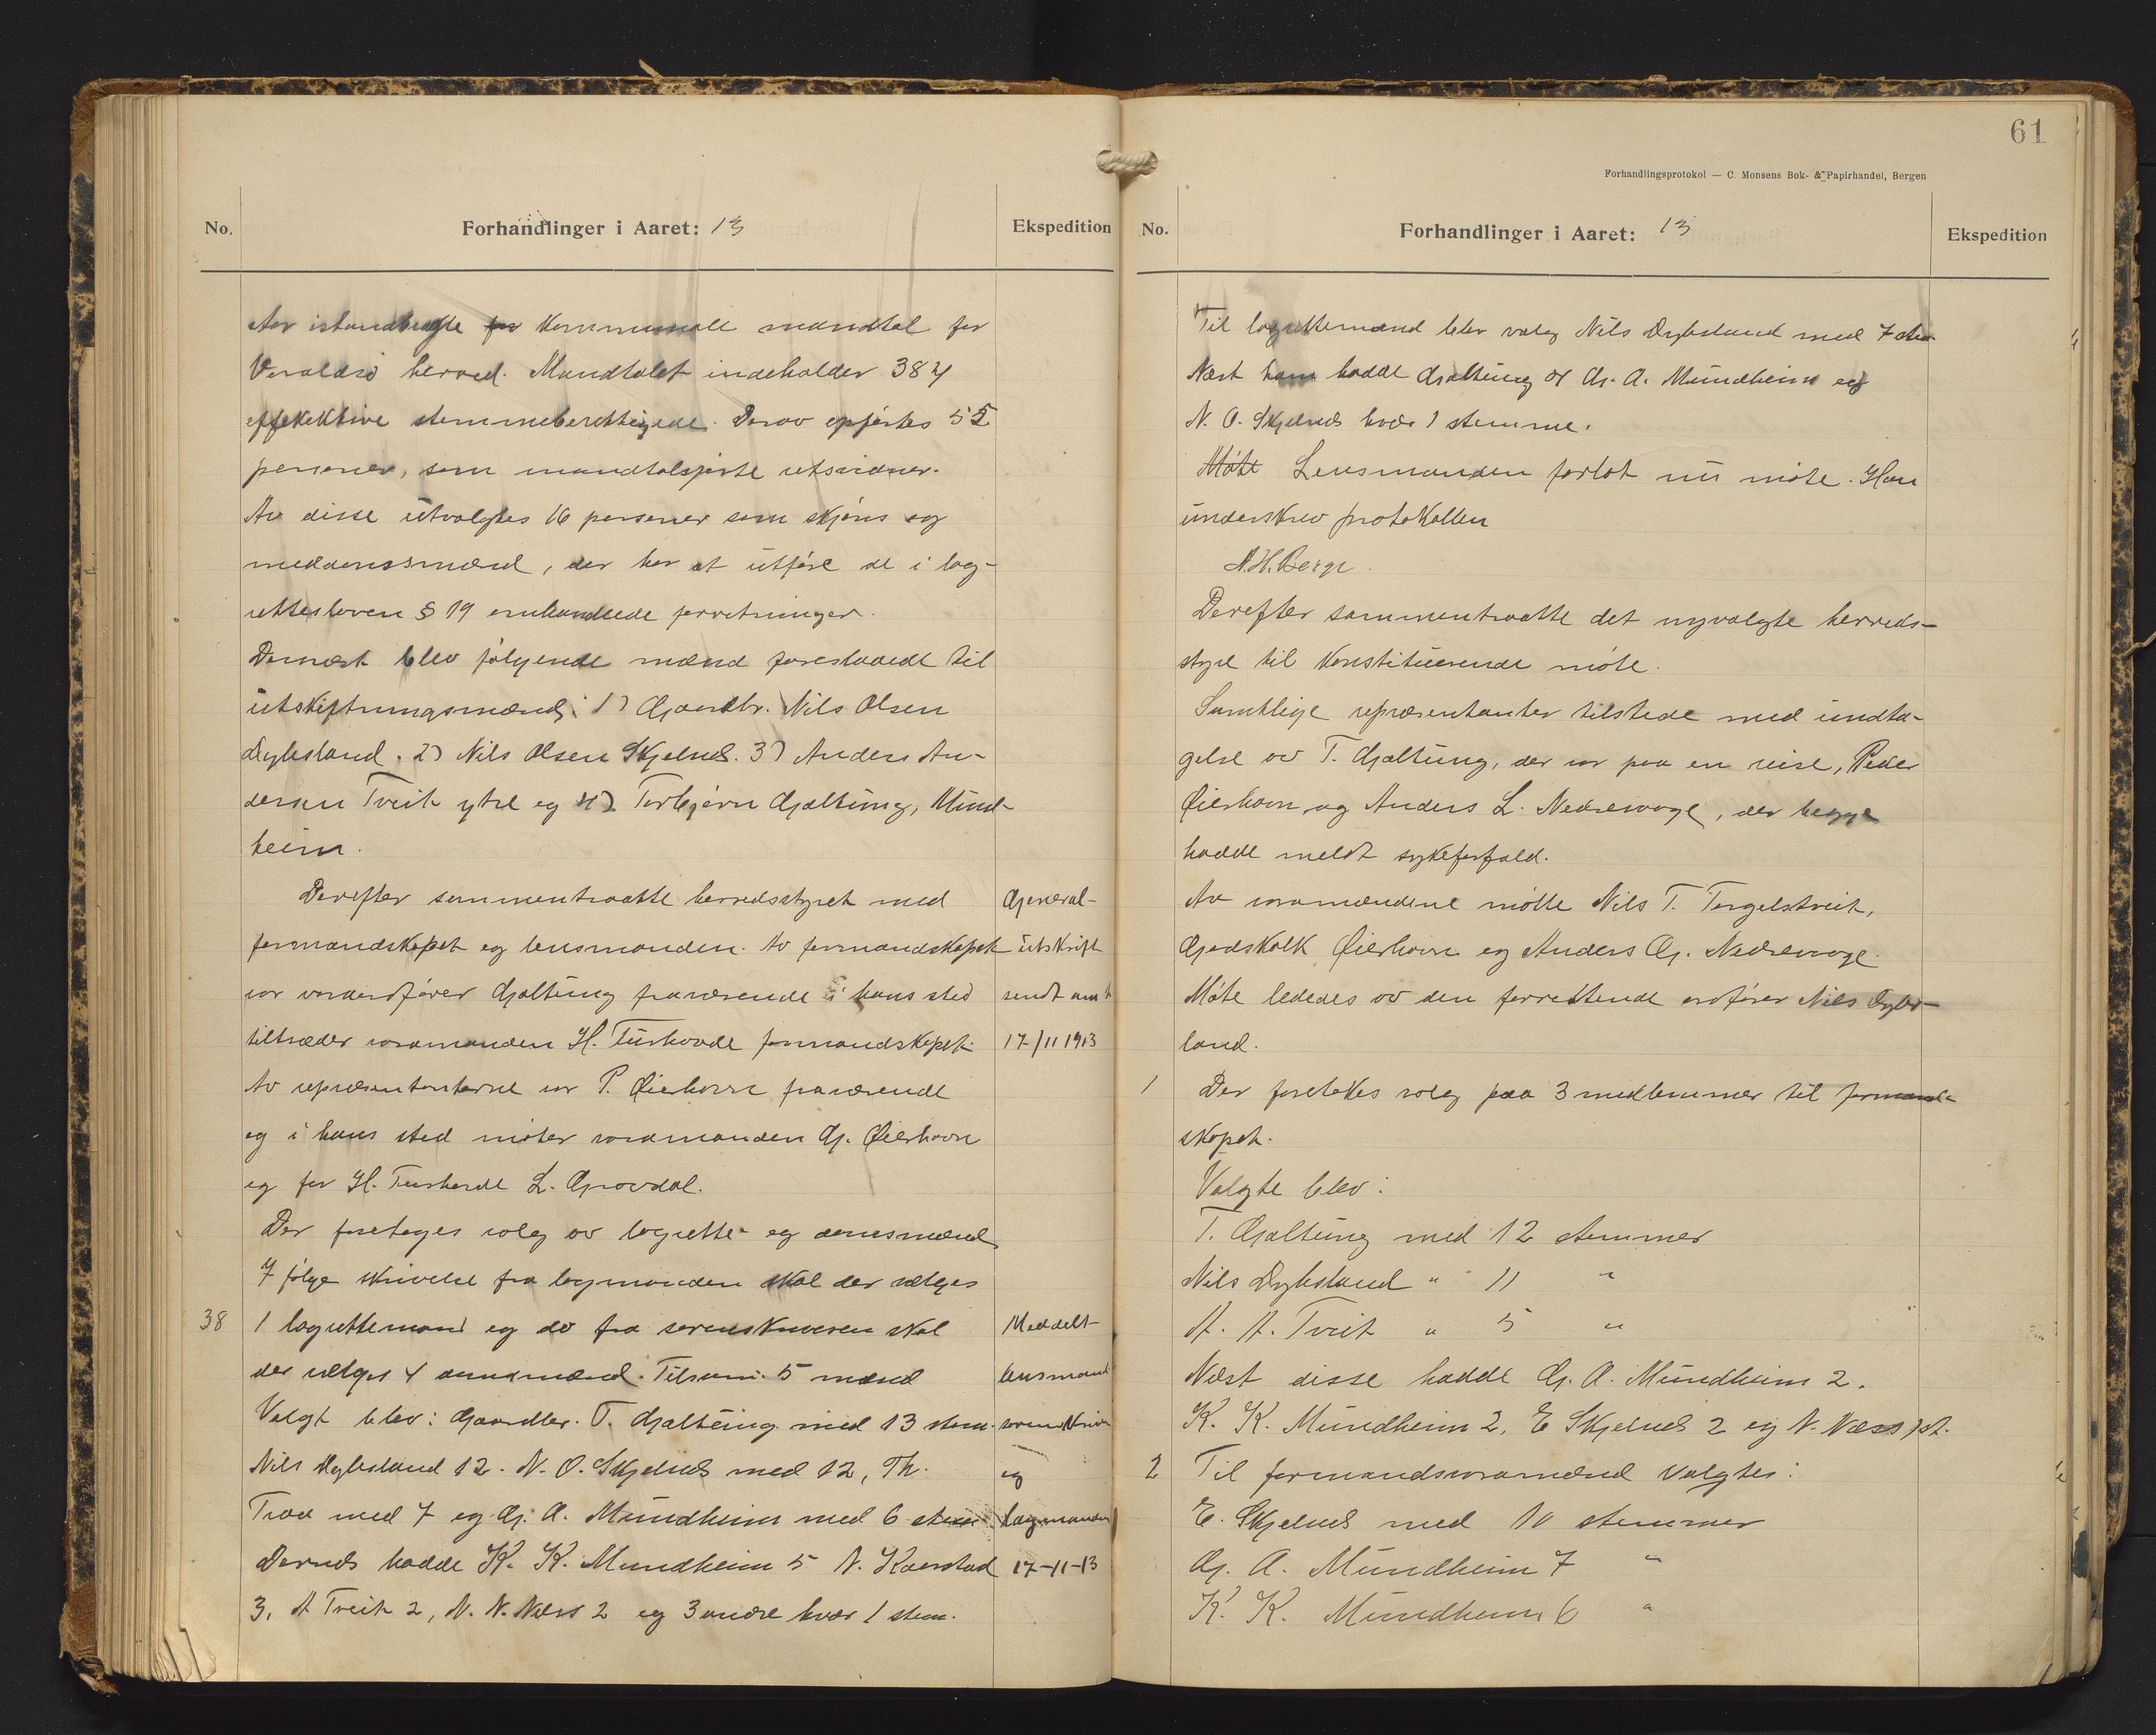 No.
Forhandlinger i Aaret: 13
Ekspedition
Av istandbragte for kommunale mandtal for
Varaldsø herred. Mandtalet indeholder 384
effekektive stemmeberettigede. Derav opførtes 55
personer, som mandtalsførte utsvidner.
Av disse utvalgtes 16 personer som skjøns og
meddomsmænd, der har at utføre de i lag-
retteloven § 19 omhandlede forretninger.
Dernæst blev følgende mænd foreslaaedt til
utskiftningsmænd: 1) Gaardbr. Nils Olsen
Dybsland. 2) Nils Olsen Skjelnes. 3) Anders An-
dersen Tveit ytre og 4) Torbjørn Gjøltung, Mund-
heim.
Derefter sammentraatte herredsstyret med
Gjeneral-
formandskapet og lensmanden. Av formandskapet
utskrift
var vordfører Gjøltung fraværende i hans sted
sendt amt
tiltræder varamanden H. Turhovde formandskapet.
17/11 1913
Av repræsentanterne var P. Øierhavn fraværende
og i hans sted møter varamanden Gj. Øierhavn
og for H. Turhovde L. Grovdal.
Der foretages valg av lagrette- og domsmænd
I følge skrivelse fra lagmanden skal der vælges
38
1 lagrettemand og do fra sorenskriveren skal
Meddelt
der vælges 4 domsmænd. Tilsam. 5 mænd
lensmand
Valgt blev: Gaardbr. T. Gjøltung med 13 stem.
sorenskriver
Nils Dybsland 12. N. O. Skjelnes med 12, Th.
og
Traa med 7 og Gj. A. Mundheim med 6 stem
lagmanden
Dernæs hadde K. K. Mundheim 5 N. Kaarstad
17-11-13
3, A Tveit 2, N. N. Næss 2 og 3 andre hver 1 stem.
61
Forhandlingsprotokol — C. Monsens Bok- & Papirhandel, Bergen
No.
Forhandlinger i Aaret: 13
Ekspedition
Til lagrettemænd blev valg Nils Dybsland med 7 ste.
Næst ham hadde Gjøltung og Gj. A. Mundheim og
N. O. Skjelnes hver 1 stemme.
Møte Lensmanden forlot nu møte. Han
underskrev protokollen
N. H. Berge.
Derefter sammentraatte det nyvalgte herreds-
styre til konstituerende møte.
Samtlige repræsentanter tilstede med undta-
gelse av T. Gjøltung, der var paa en reise, Peder
Øierhavn og Anders L. Nedrevaage, der begge
hadde meldt sykeforfald.
Av varamændene møtte Nils T. Torgelstveit,
Gjedskalk Øierhavn og Anders Gj. Nedrevaage.
Møte lededes av den forrettende ordfører Nils Dybs-
land.
1
Der foretokes valg paa 3 medlemmer til formand-
skapet.
Valgte blev:
T. Gjøltung med 12 stemmer
Nils Dybsland " 11 "
A. A. Tveit " 5 "
Næst disse hadde Gj. A. Mundheim 2.
K. K. Mundheim 2, E Skjelnes 2 og N. Næss 1 st.
2
Til formandsvaramænd valgtes:
E. Skjelnes med 10 stemmer
Gj. A. Mundheim 7 "
K. K. Mundheim 6 "